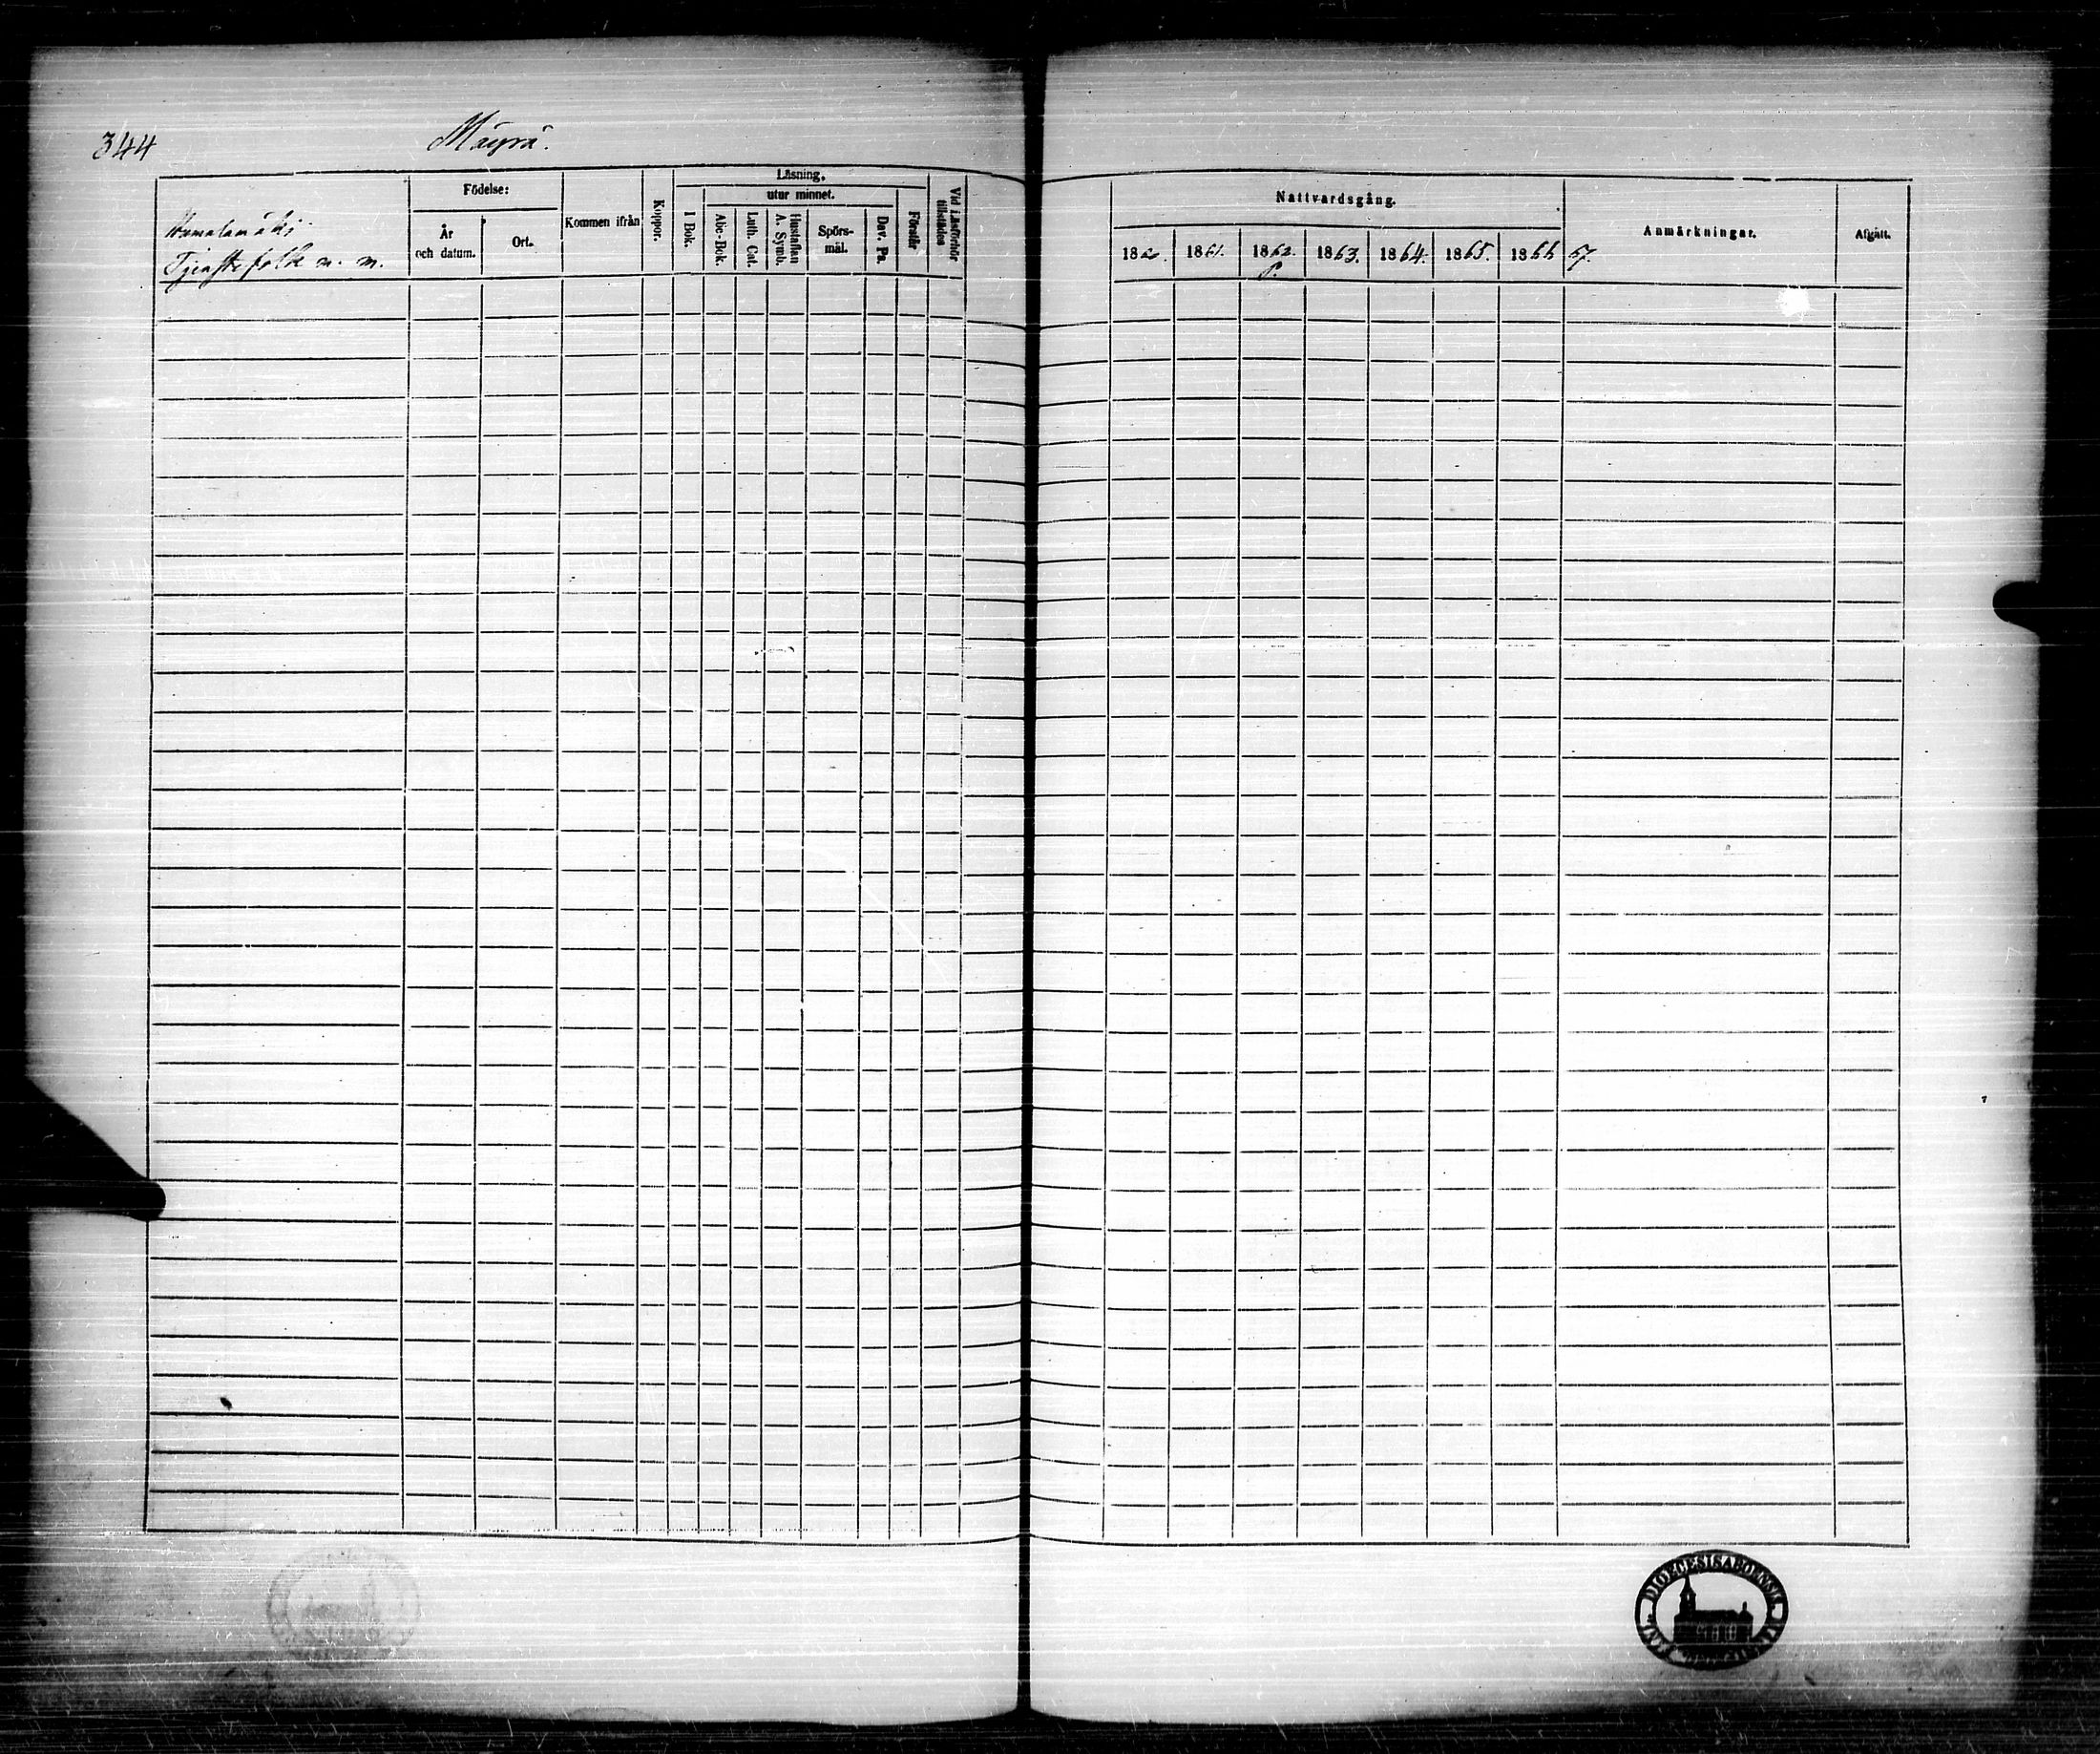 344
Mäyrä.
Hamalamäki
Tjenstefolk m. m.
Födelse:
År
och datum.
Ort.
Kommen ifrån
Koppor.
Läsning.
I Bok.
utur minnet.
Abc-Bok.
Luth. Cat.
Hustaflan
A. Symb.
Spörs-
mål.
Dav. Ps.
Förstår
Vid Läsförhör
tillstädes
Nattvardsgång.
1860.
1861.
1862.
1863.
1864.
1865.
1866
67.
P.
Anmärkningar.
Afgått.
DIOECESIS ABOENSIS